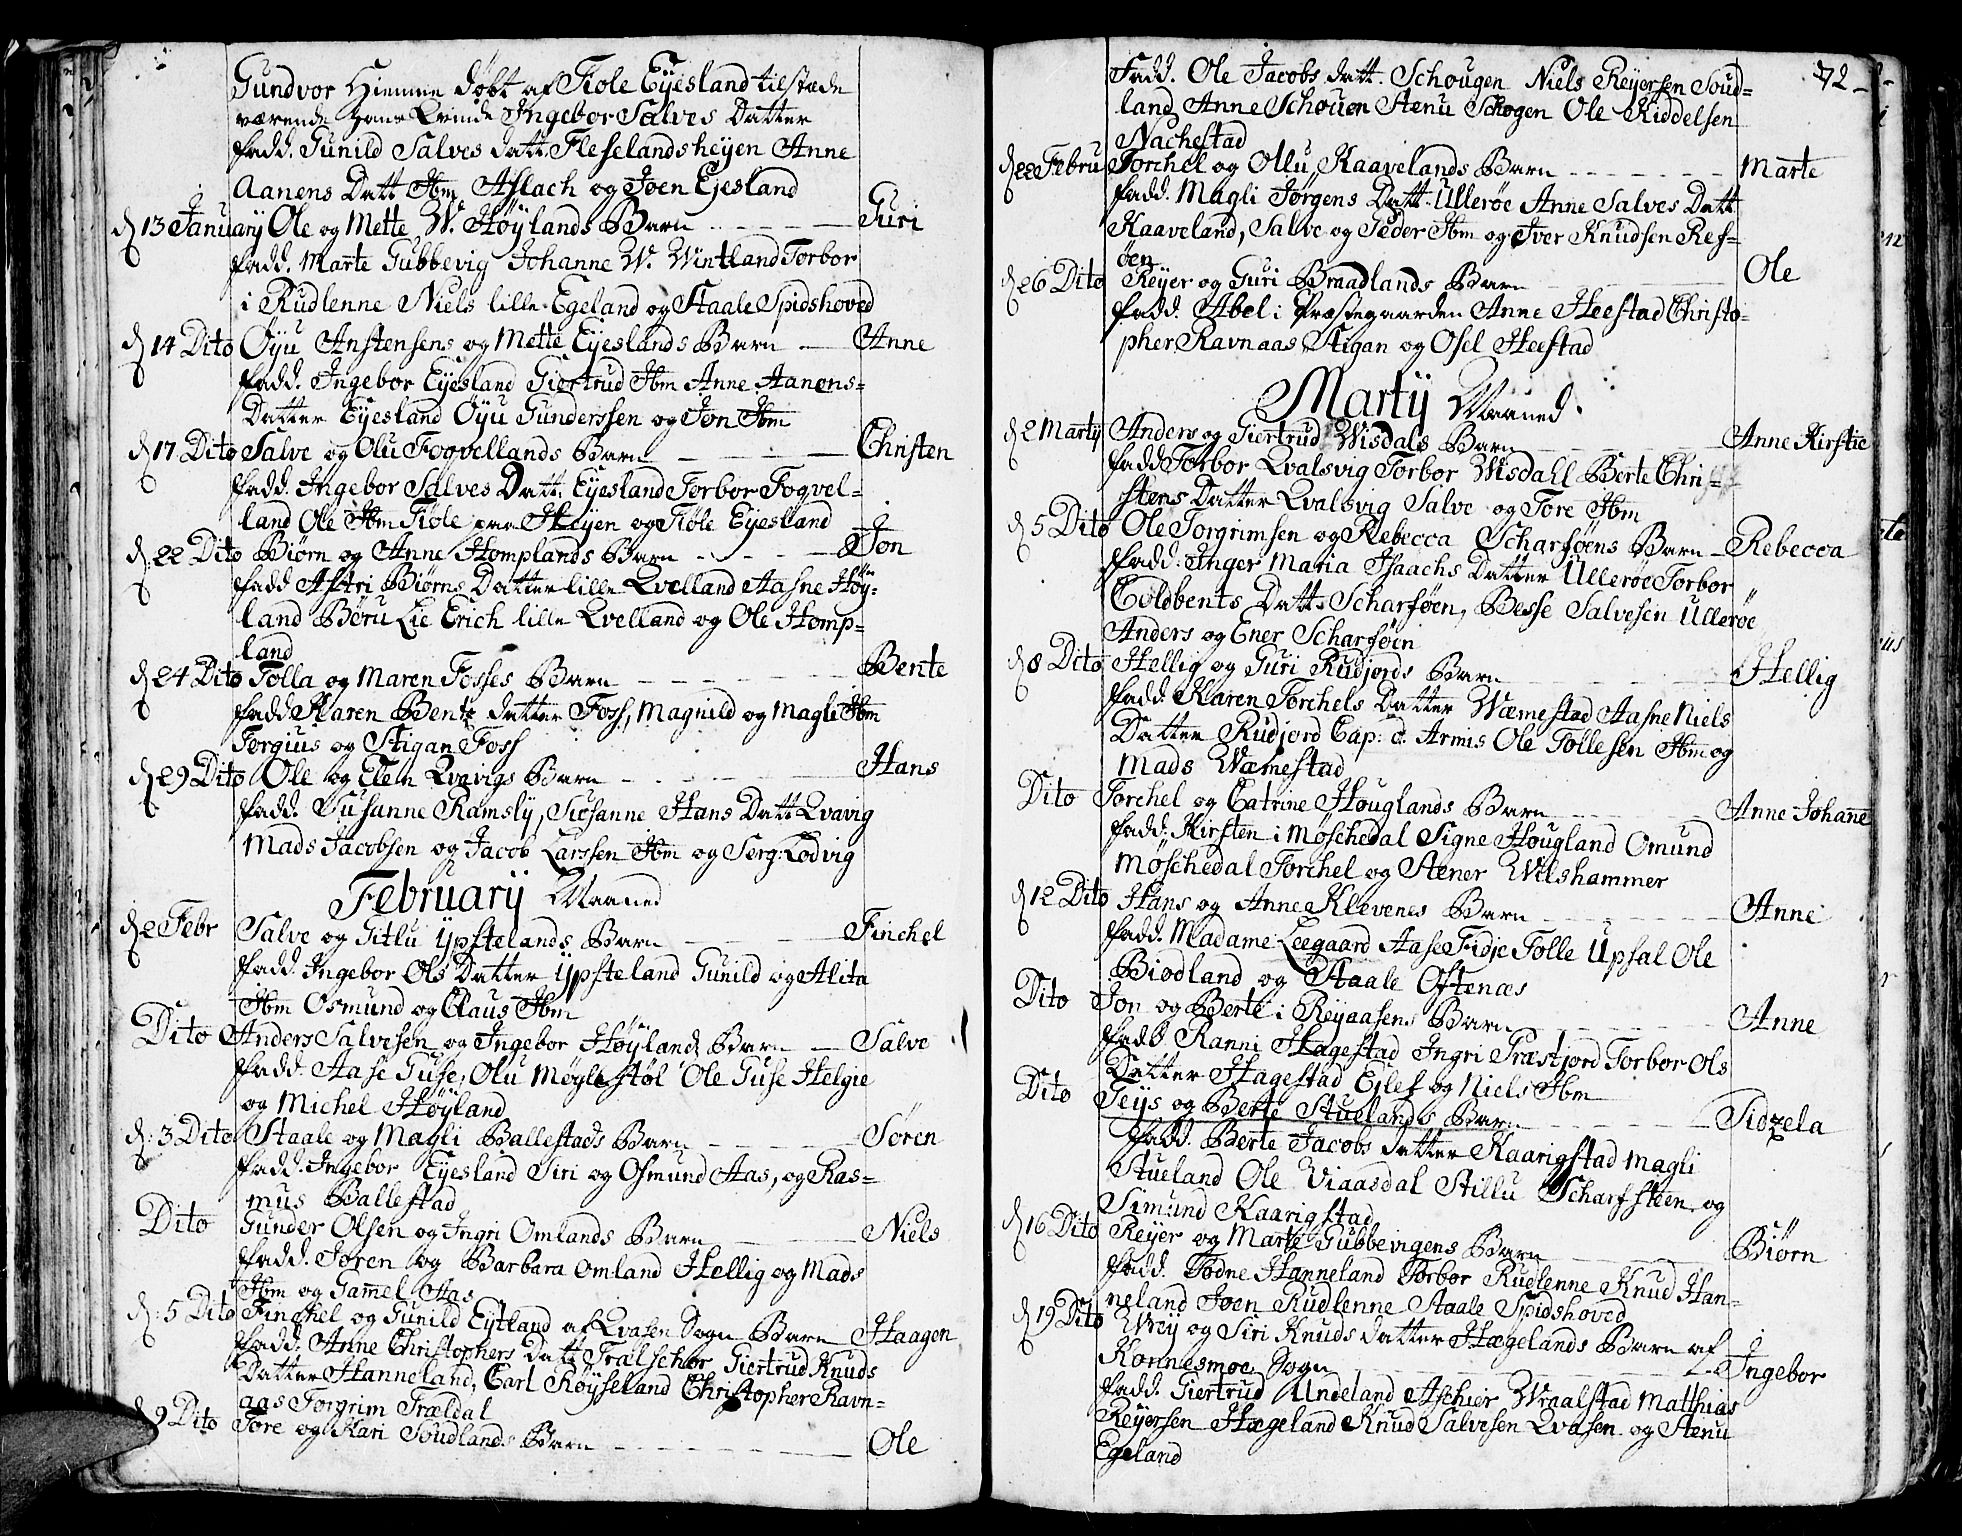 Gundvor Hiemme døbt af Tiole Eÿesland tilstæde
værende hans Qvinde Ingebor Salves Datter
Fadd. Gunild Salves datt. Fleselandsheÿen Anne
Aanens Datt Ibm, Aslach og Joen Ejesland
d 13 Januarÿ Ole og Mette W. Høÿlands Barn Guri
Fadd. Marte Gubbevig Johanne W. Wintland Torbor
i Rudlenne Niels lille Egeland og Staale Spidshoved
d 14 Dito Öÿu Anstensens og Mette Eÿeslands Barn Anne
Fadd. Ingebor Eÿesland Giertrud Ibm Anne Aanens=
Datter Eÿesland Öÿu Gunderssen og Jon Ibm
d 17 Dito Salve og Olu Fogvellands Barn Christen
Fadd. Ingebor Salves Datt. Eÿesland Torbor Fogvel=
land Ole Ibm Tiøle paa Heÿen og Tiøle Eÿesland
d. 22 Dito Biørn og Anne Homplands Barn Jon
Fadd Astri Biørns Datter lille Qvelland Aasne Høÿ=
land Børu Lie Erich lille Qvelland og Ole Homp=
land
d 24 Dito Tolla og Maren Fosses Barn Bente
Fadd Karen Bents datter Foss, Magnild og Magli Ibm
Torgius og Stigan Foss
d 29 Dito Ole og Elen Qvavigs Barn Hans
Fadd. Susanne Ramslÿ, Susanne Hans Datt Qvavig
Mads Jacobsen og Jacob Larssen Ibm og Serg: Lodvig
Februarÿ Maaned
d 2 Febr Salve og Gitlu Ÿpstelands Barn Finchel
Fadd. Ingebor Ols Datter Ÿpsteland Gunild og Alita
Ibm Osmund og Claus Ibm
Dito Anders Salvesen og Ingebor Høÿlands Barn Salve
Fadd. Aase Guse, Olu Møglestøl Ole Guse Helgie
og Michel Høÿland
d. 3 Dito Staale og Magli Ballestads Barn Søren
Fadd. Ingebor Eÿesland Siri og Osmund Aas, og Ras=
mus Ballestad
Dito Gunder Olsen og Ingri Omlands Barn Niels
Fadd. Joren og Barbara Omland Hellig og Mads
Ibm og Gam̄el Aas
d. 5 Dito Finchel og Gunild Eÿtland af Qvasen Sogn Barn Haagen
Fadd. Anne Christophers Datt Trælschor Giertrud Knuds
Datter Hanneland, Carl Røÿseland Christopher Ravn=
aas Torgrim Trældal
d 9 Dito Tore og Kari Soudlands Barn Ole
72
Fadd. Ole Jacobs datt. Schougen Niels Reÿersen Soud=
land Anne Schouen Stenu Schogen Ole Kiddelsen
Nachestad
d 22 Febru Torchel og Ollu Kaavelands Barn Marte
Fadd. Magli Jørgens Datt. Ullerøe Anne Salves Datt
Kaaveland, Salve og Peder Ibm og Iver Knudsen Ref=
öen
d 26 Dito Reÿer og Guri Braadlands Barn Ole
Fadd. Abel i Præstegaarden Anne Heestad Christo=
pher Ravnaas Stigan og Osel Heestad
Martÿ Maaned
d 2 Martÿ Anders og Giertrud Wisdals Barn Anne Kirstie
Fadd Torbor Qvalsvig Torbor Wisdahl Berte Chri=
stens Datter Qvalsvig Salve og Tore Ibm
d 5 Dito Ole Torgrimsen og Rebecca Scharføens Barn Rebecca
Fadd. Inger Maria Isaachs Datter Ullerøe Torbor
Coldbents Datt. Scharføen, Besse Salvesen Ullerøe
Anders og Ener Scharføen
d 8 Dito Hellig og Guri Rudjords Barn Hellig
Fadd. Karen Torchels Datter Wæmestad Aasne Niels
Datter Rudjord Cap: d. Armis Ole Tollesen Ibm og
Mads Wæmestad
Dito Torchel og Catrine Houglands Barn Anne Johan̄e
Fadd. Kirsten i Møschedal Signe Hougland Omund
Møschedal Torchel og Stener Wilshammer
d 12 Dito Hans og Anne Klevenes Barn Anne
Fadd. Madame Leegaard Aase Fidje Tolle Upsal Ole
Biødland og Staale Oftenæs
Dito Jon og Berte i Reÿaasens Barn Anne
Fadd Ranni Hagestad Ingri Præstjord Torbor Ols
Datter Hagestad Ejlef og Niels Ibm
Dito Teÿs og Berte Stuelands Barn Sidzela
Fadd. Berte Jacobs datter Kaarigstad Magli
Stueland Ole Viaasdal Stillu Scharfsteen og
Simund Kaarigstad
d 16 Dito Reÿer og Marte Gubbevigens Barn Biørn
Fadd. Todne Hanneland Torbor Rudlenne Knud Han=
neland Joen Rudlenne Staale Spidshoved
d 19 Dito Wreÿ og Siri Knuds datter Hægelands Barn af
Konnesmoe Sogn Ingebor
Fadd. Giertrud Undeland Aschier Wraalstad Matthias
Reÿersen Hægeland Knud Salvesen Qvasen og Stenu
Egeland